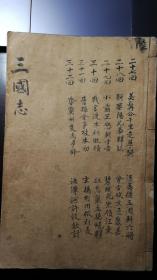 二十七回 美髯公千里走單騎 漢壽侯五關斬六將
二十八回 斬蔡陽兄弟釋疑 會古城主臣聚義
二十九回 小霸王怒斬于吉 碧眼兒坐領江東
三十回 戰官渡本初敗績 劫烏巢孟德燒糧
三十一回 曹操倉亭破本初 玄德荊州依劉表
三十二回 奪冀州袁尚爭鋒 決漳河許攸獻計
三國志